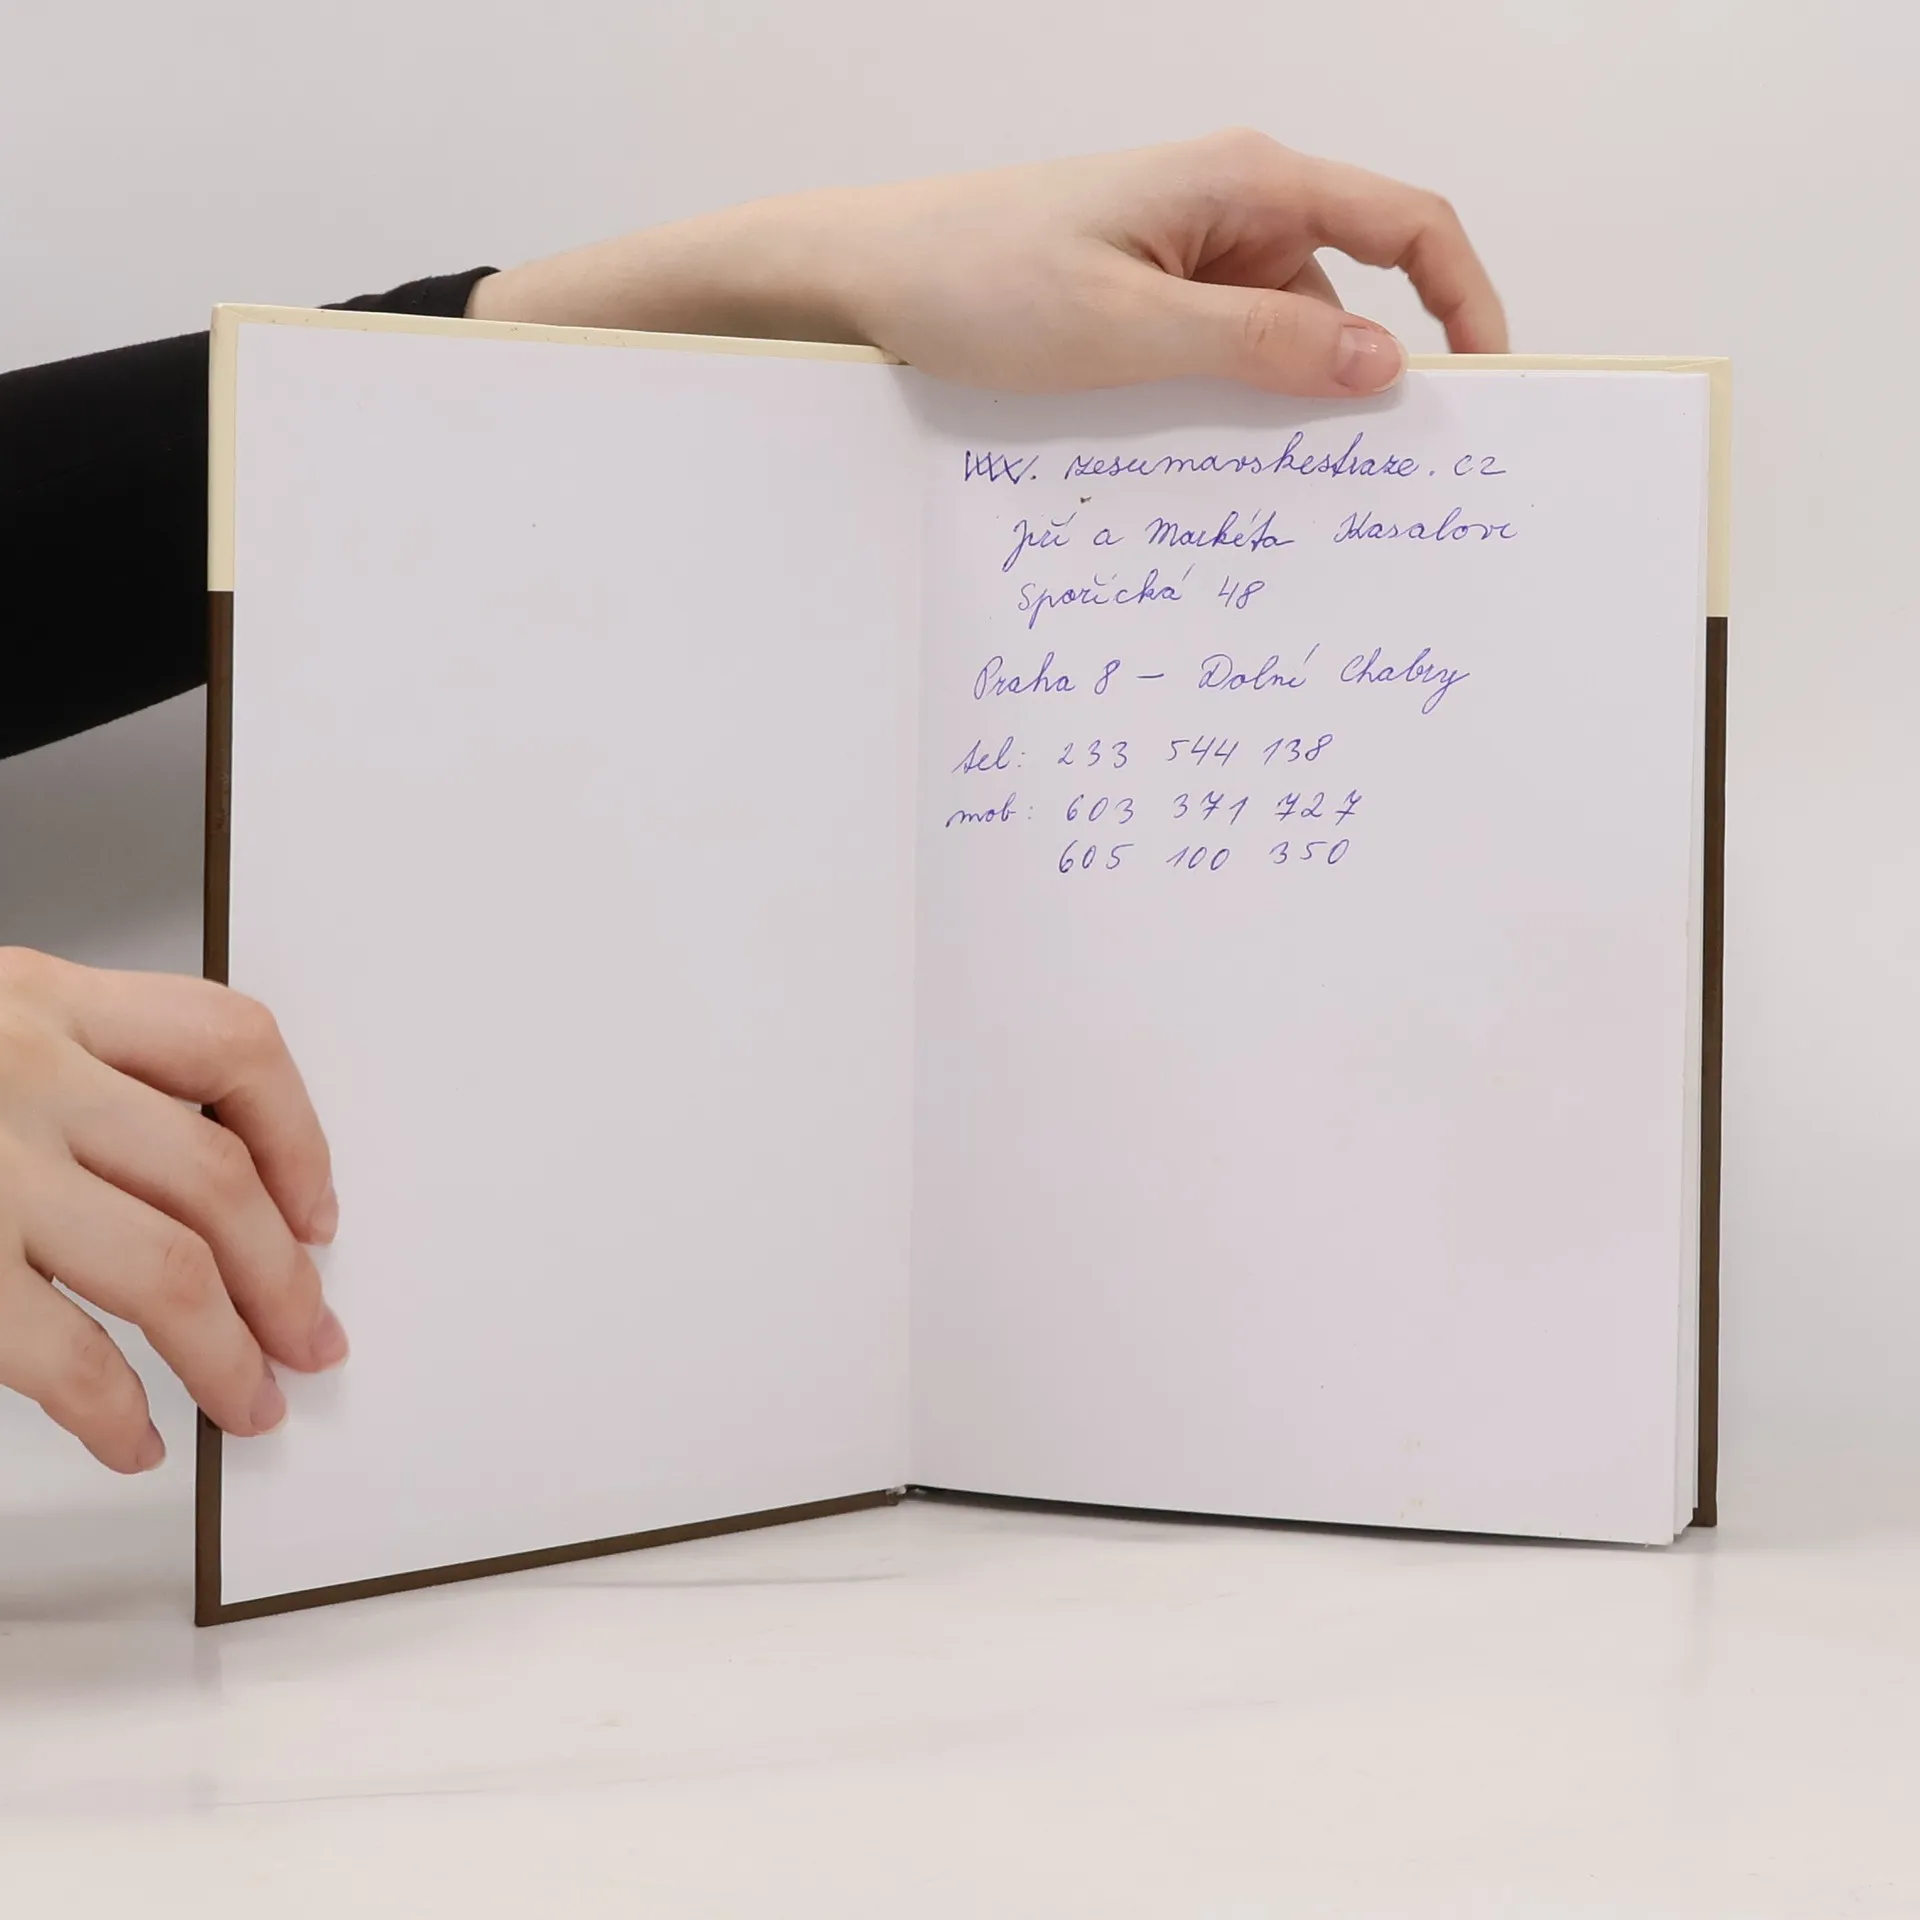 www. zesumavskestraze.cz
Jiří a Markéta Kasalovi
Spořická 48
Praha 8 – Dolní Chabry
tel: 233 544 138
mob: 603 371 727
605 100 350